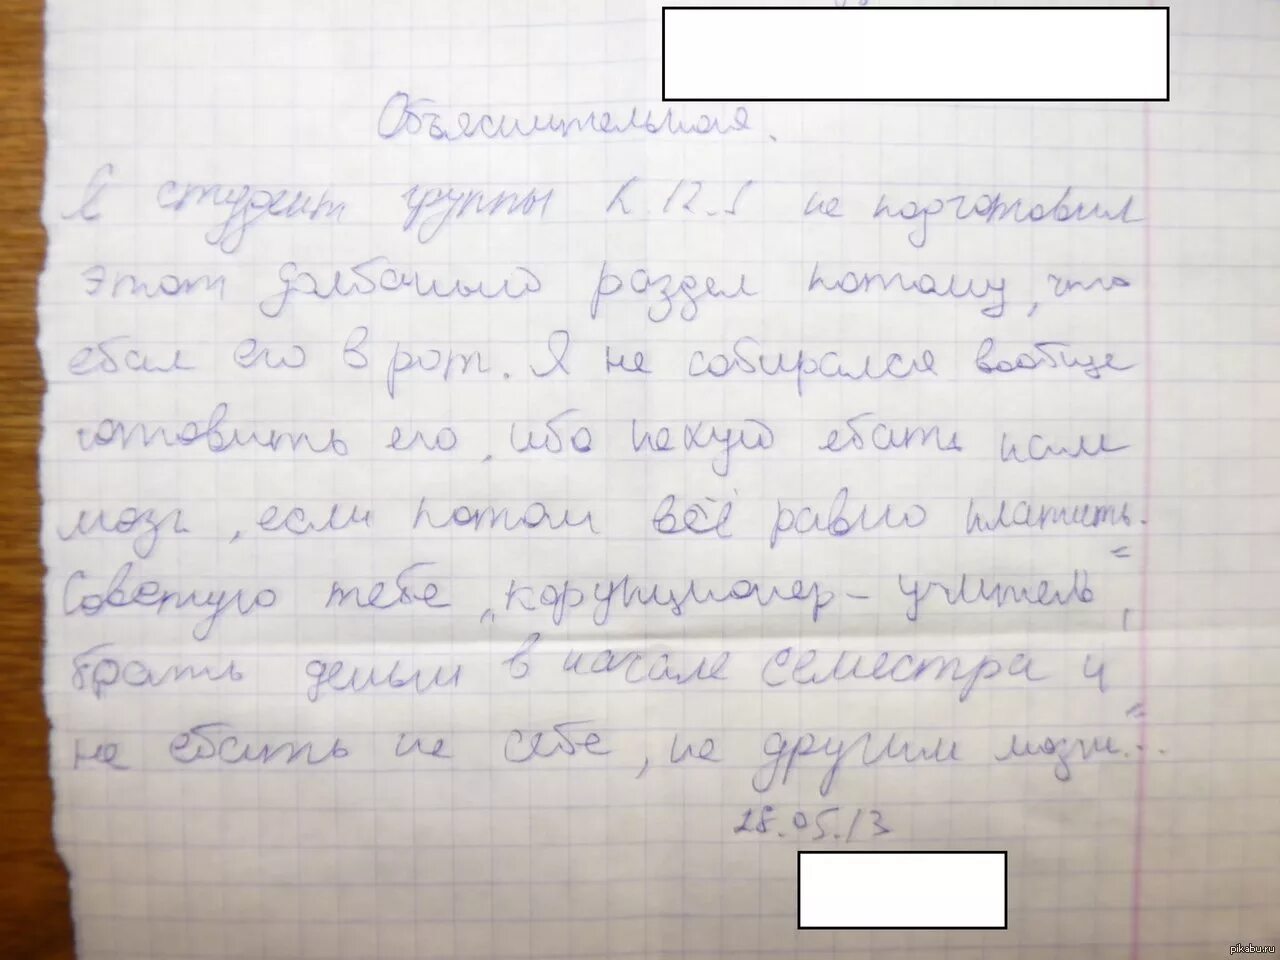 Объяснительная.
Я студент группы К.12.1 не подготовил
этот долбаный раздел потому, что
ебал его в рот. Я не собирался вообще
готовить его, ибо нехуй ебать нам
мозг, если потом всё равно платить.
Советую тебе „корупционер - учитель",
брать деньги в начале семестра и
не ебать не себе, не другим мозги"...
28.05.13
pikabu.ru